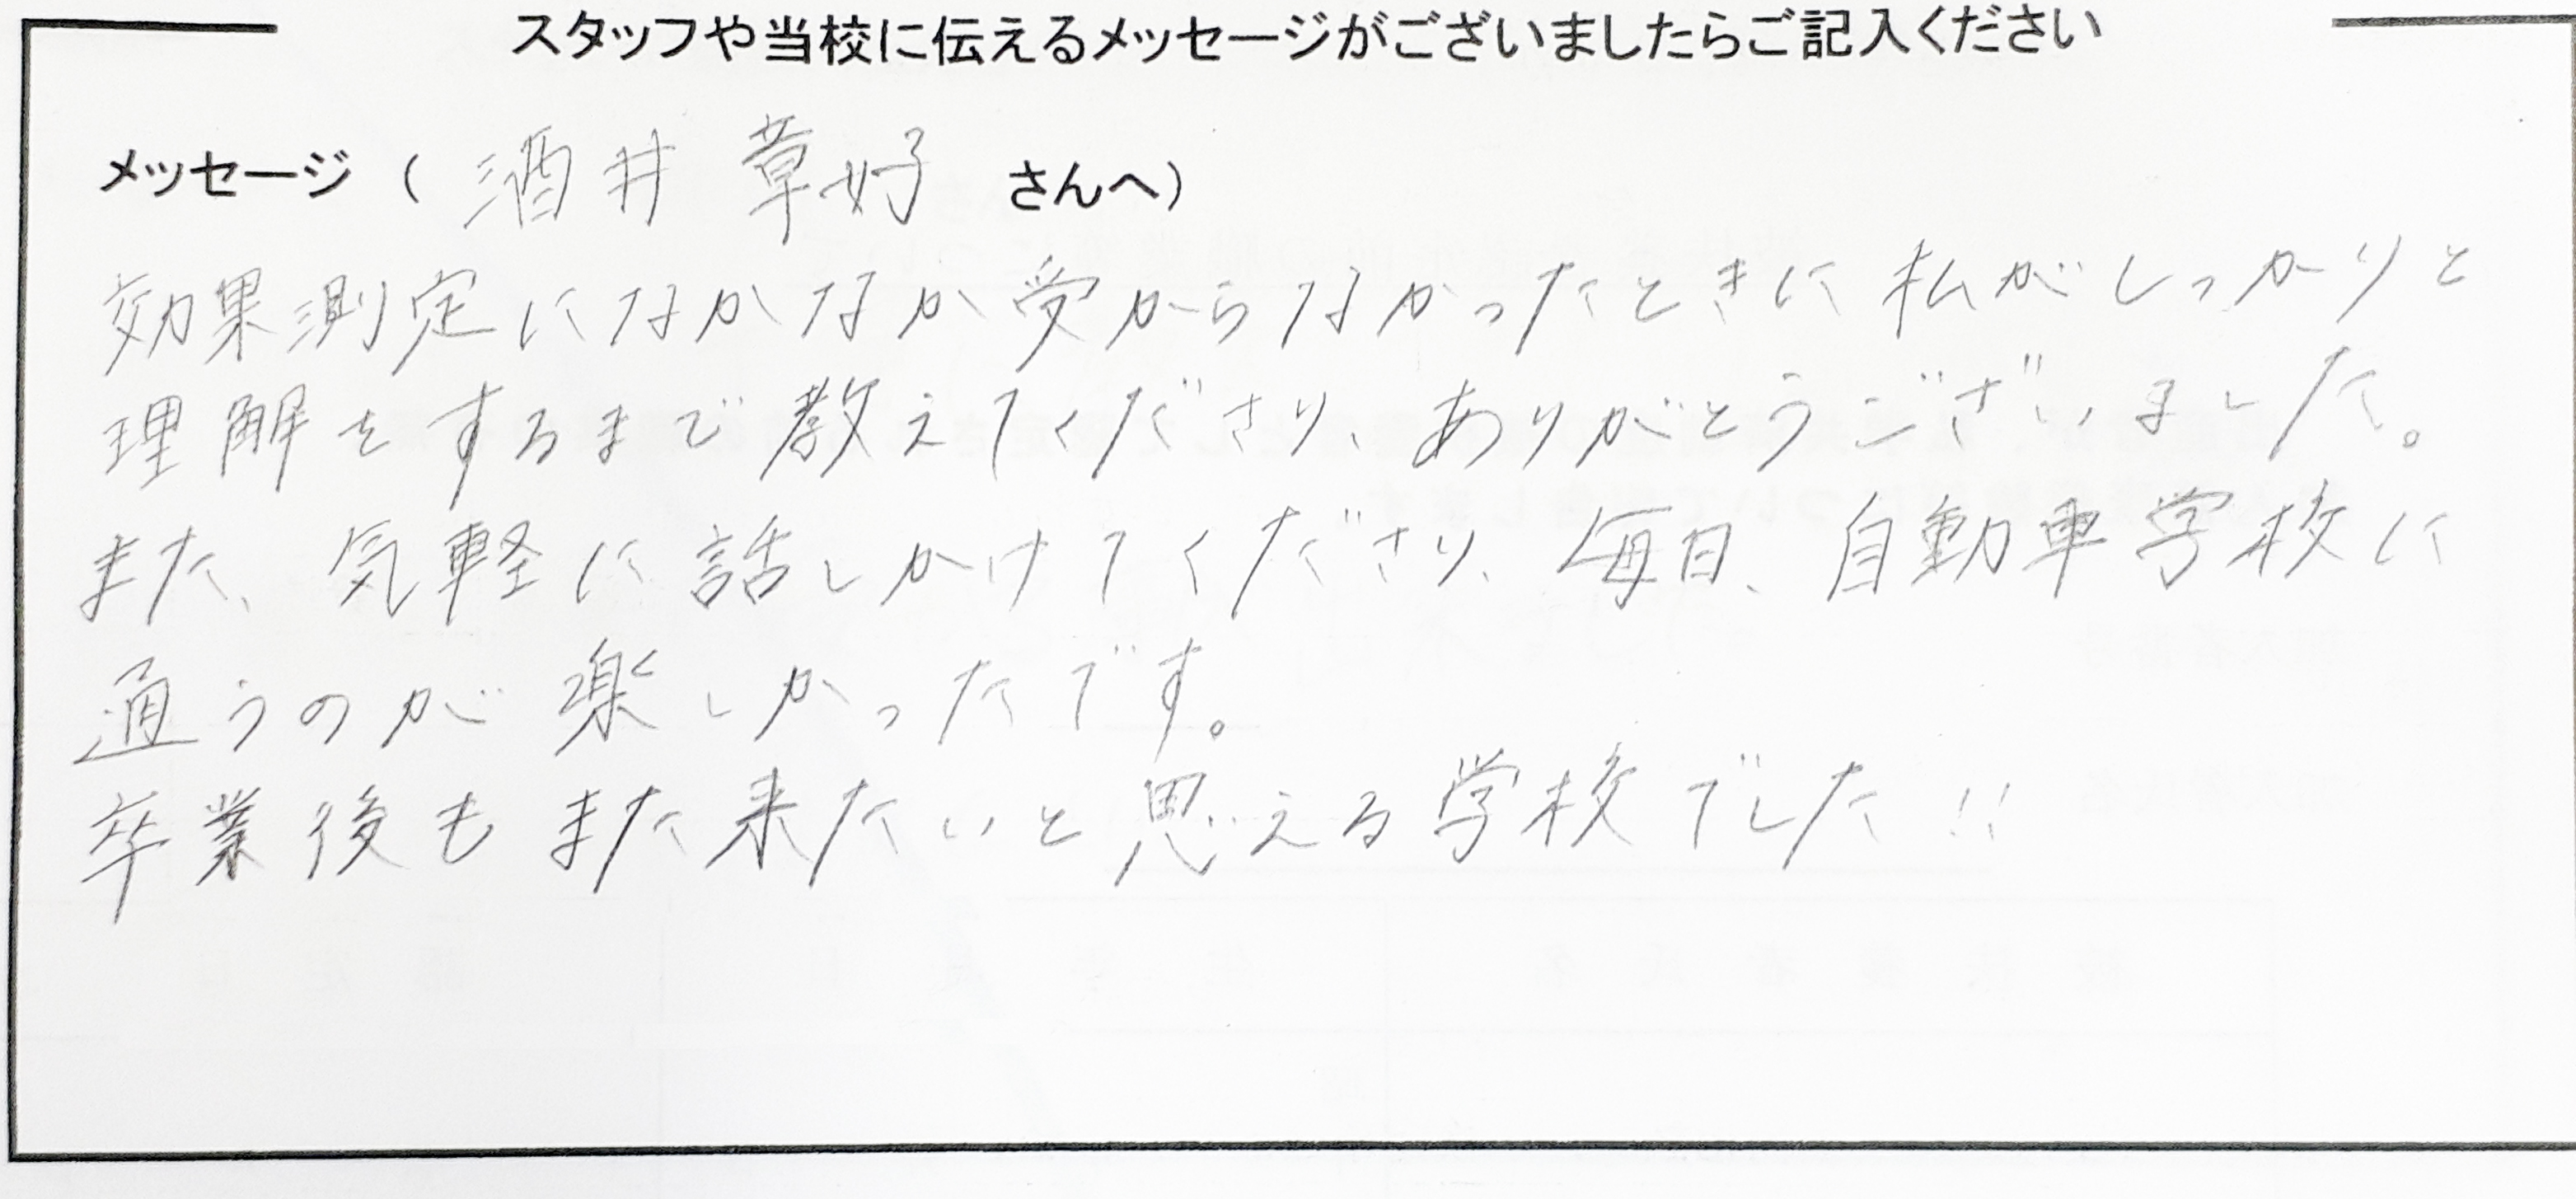 スタッフや当校に伝えるメッセージがございましたらご記入ください
メッセージ（ 酒井 章好 さんへ）
効果測定になかなか受からなかったときに私がしっかりと
理解をするまで教えてくださり、ありがとうございました。
また、気軽に話しかけてくださり、毎日、自動車学校に
通うのが楽しかったです。
卒業後もまた来たいと思える学校でした!!